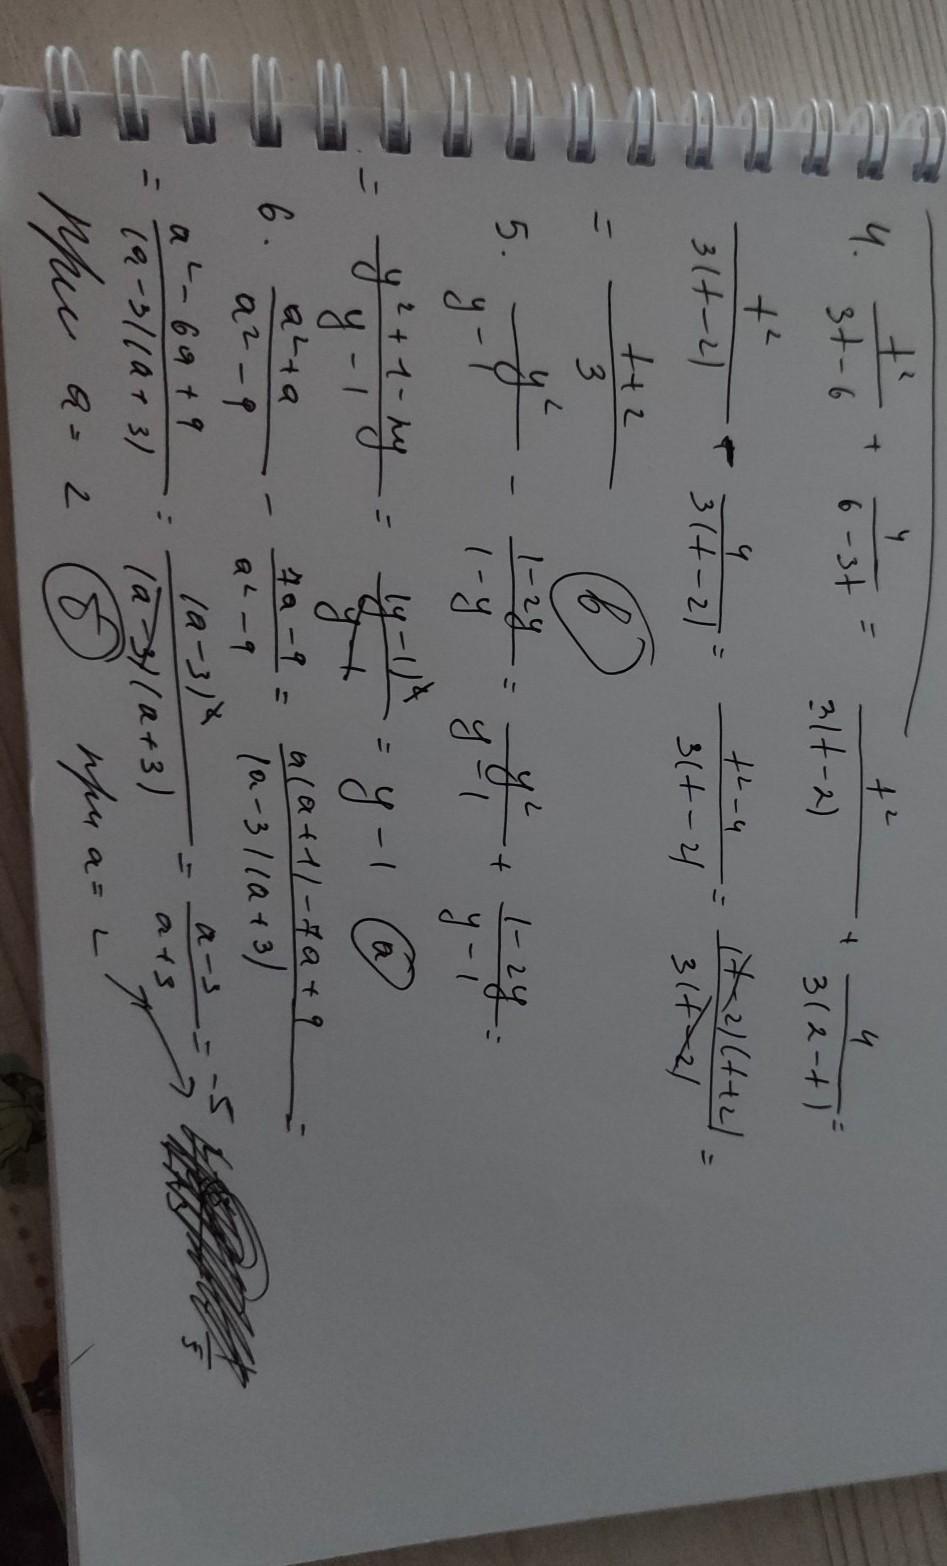 4. t²/(3t-6) + 4/(6-3t) = t²/3(t-2) + 4/3(2-t) =
t²/3(t-2) - 4/3(t-2) = (t²-4)/3(t-2) = (t-2)(t+2)/3(t-2) =
= (t+2)/3 (в)
5. y²/(y-1) - (1-2y)/(1-y) = y²/(y-1) + (1-2y)/(y-1) =
= (y²+1-2y)/(y-1) = (y-1)²/(y-1) = y-1 (а)
6. (a²+a)/(a²-9) - (7a-9)/(a²-9) = (a(a+1)-7a+9)/(a-3)(a+3) =
= (a²-6a+9)/(a-3)(a+3) = (a-3)²/(a-3)(a+3) = (a-3)/(a+3) = -5
При a = 2 (б) при a = 2